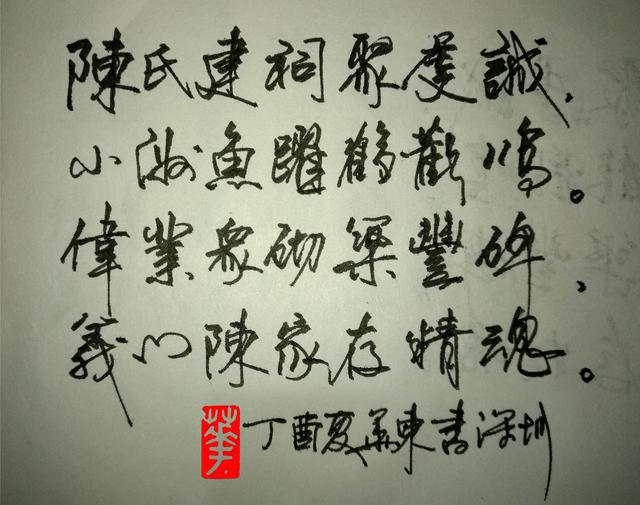 陳氏建祠聚虔誠，
小海魚躍鶴歡鳴。
偉業眾砌築豐碑，
義門陳家存精魂。
華 丁酉夏華東書深圳